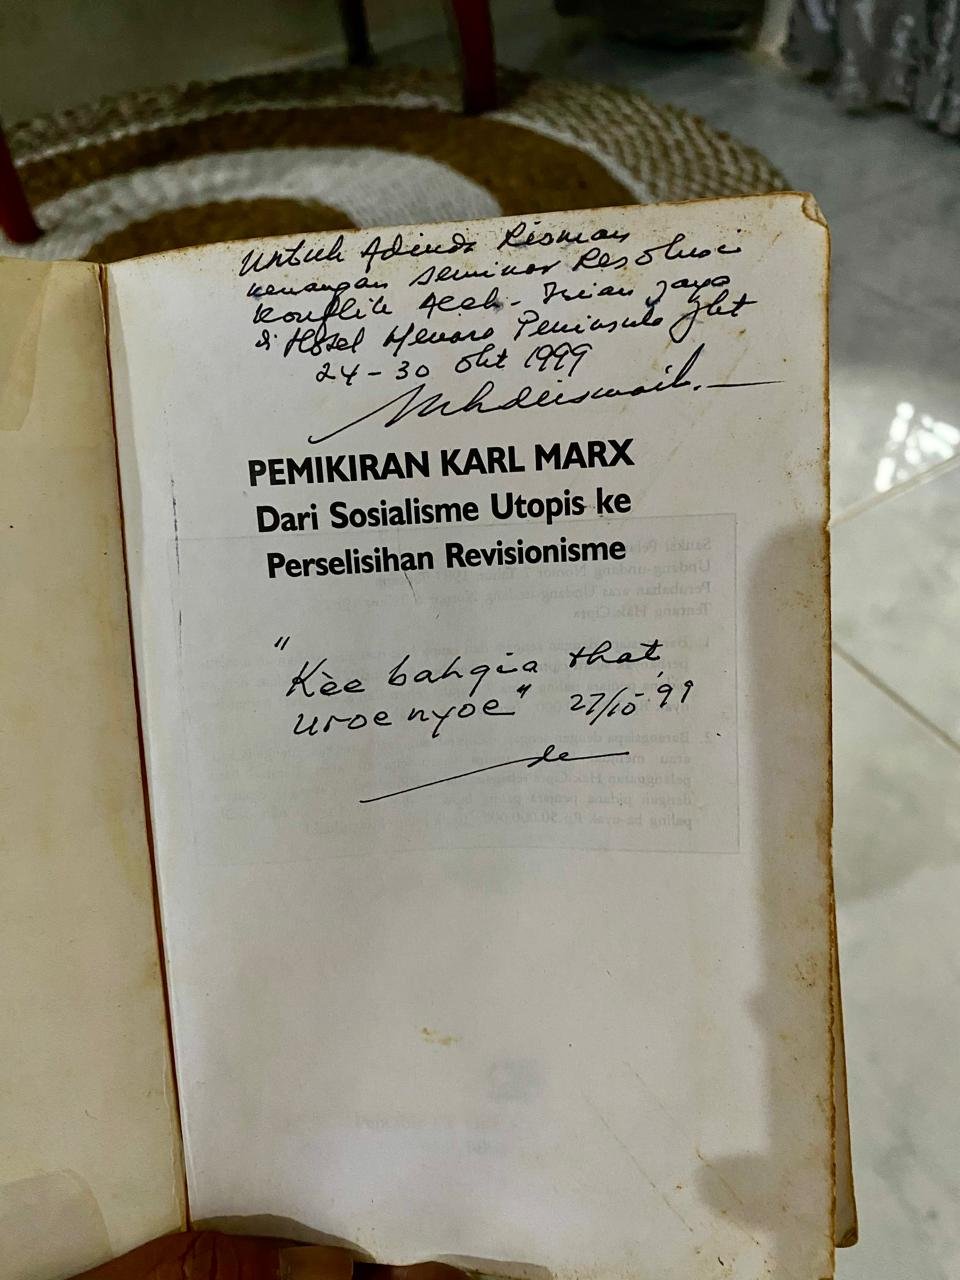 Untuk Adinda Risman
kenangan seminar Resolusi
Konflik Aceh - Irian Jaya
di Hotel Menara Peninsula Jkt
24 - 30 Okt 1999
PEMIKIRAN KARL MARX
Dari Sosialisme Utopis ke
Perselisihan Revisionisme
"Kèe bahgia that
uroe nyoe" 27/10 '99